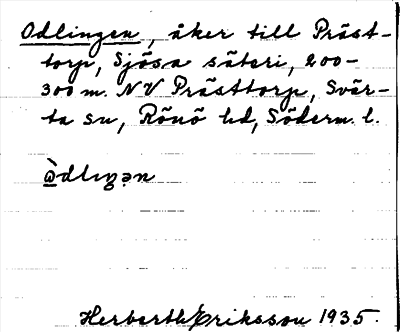 Odlingen, åker till Präst-
torp, Sjösa säteri, 200-
300 m. NV Prästtorp, Svär-
ta sn, Rönö hd, Söderm. l.
Herberth Eriksson 1935.